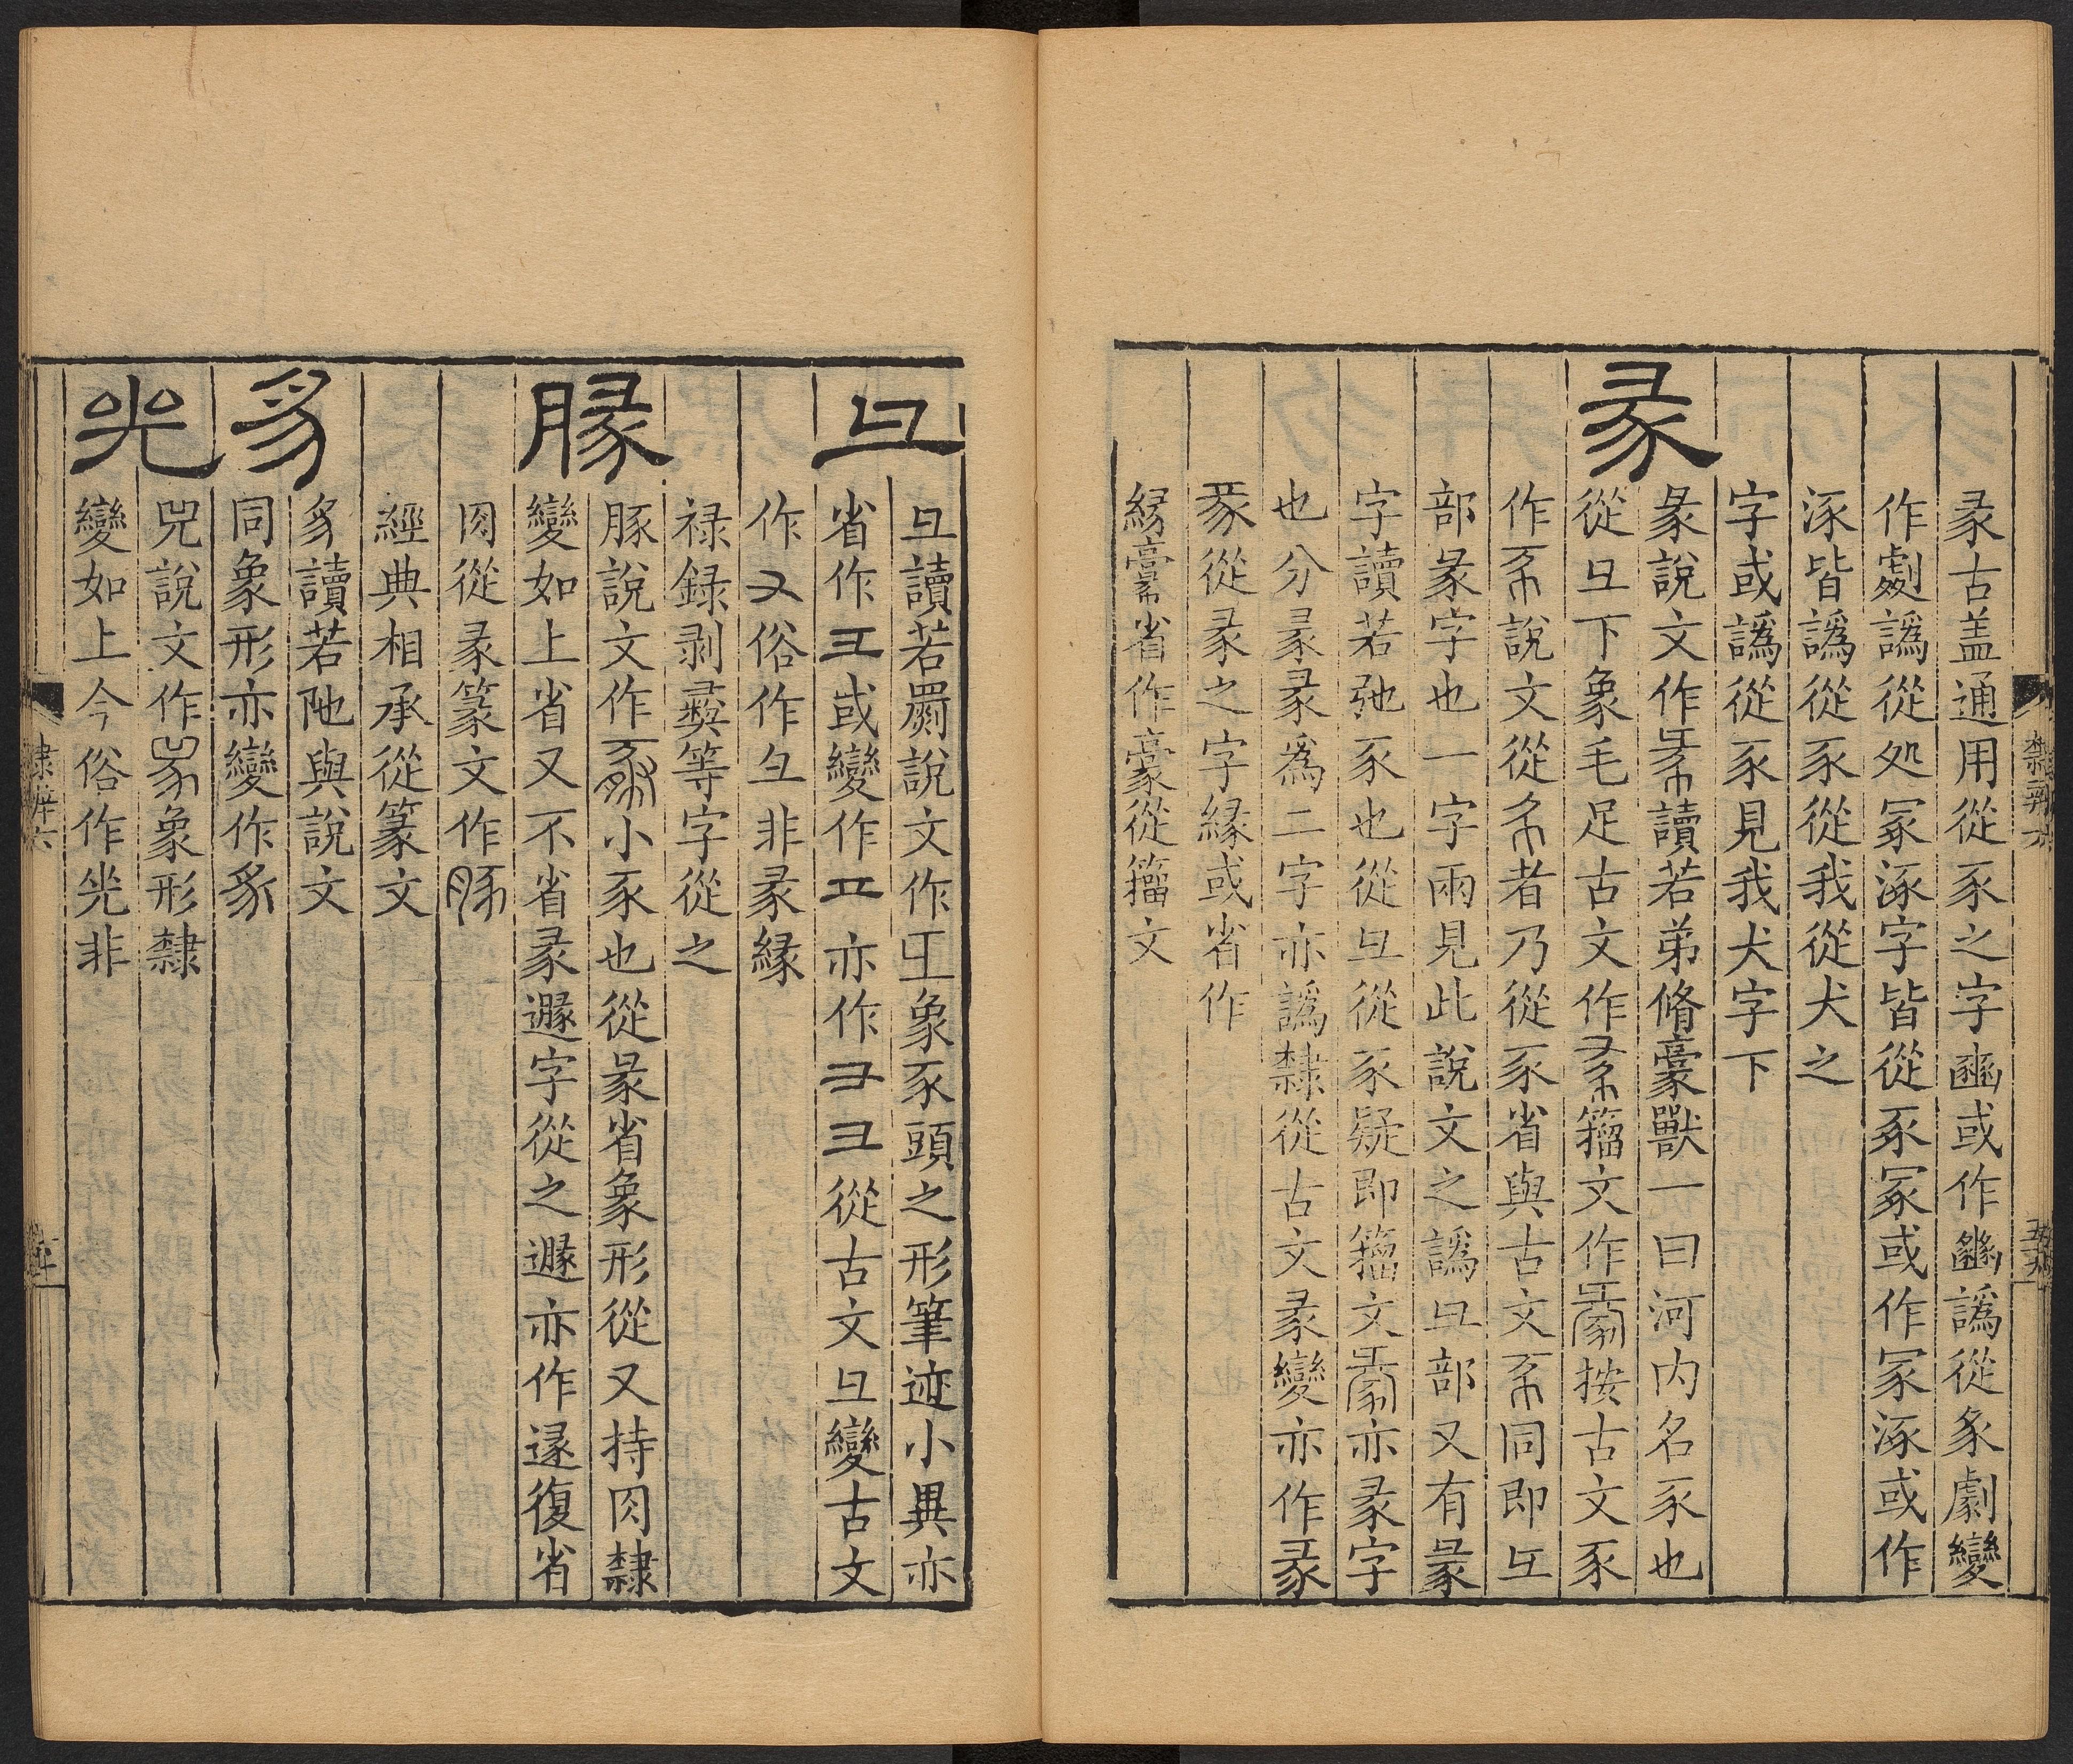 彖古盖通用從豕之字豳或作豳譌從象劇變
作劌譌從処冢涿字皆從豕冢或作冡涿或作
涿皆譌從豕從我從犬之
字或譌從豕見我犬字下
彖
彖說文作讀若弟脩豪獸一曰河内名豕也
從彑下象毛足古文作籀文作按古文豕
作說文從者乃從豕省與古文同即彑
部彖字也一字兩見此說文之譌彑部又有彖
字讀若弛豕也從彑從豕疑即籀文亦彖字
也分彖彖爲二字亦譌隸從古文彖變亦作彖
從彖之字緣或省作
緣省作豪從籀文
彑
彑讀若罽說文作象豕頭之形筆迹小異亦
省作或變作亦作彐從古文彑變古文
作俗作彑非彖緣
禄録剥彝等字從之
豚
豚說文作小豕也從彖省象形從又持肉隸
變如上省又不省彖遯字從之遯亦作遂復省
肉從彖篆文作豚
經典相承從篆文
豸
豸讀若阤與說文
同象形亦變作豸
兕
兕說文作象形隸
變如上今俗作兕非
隸辨六